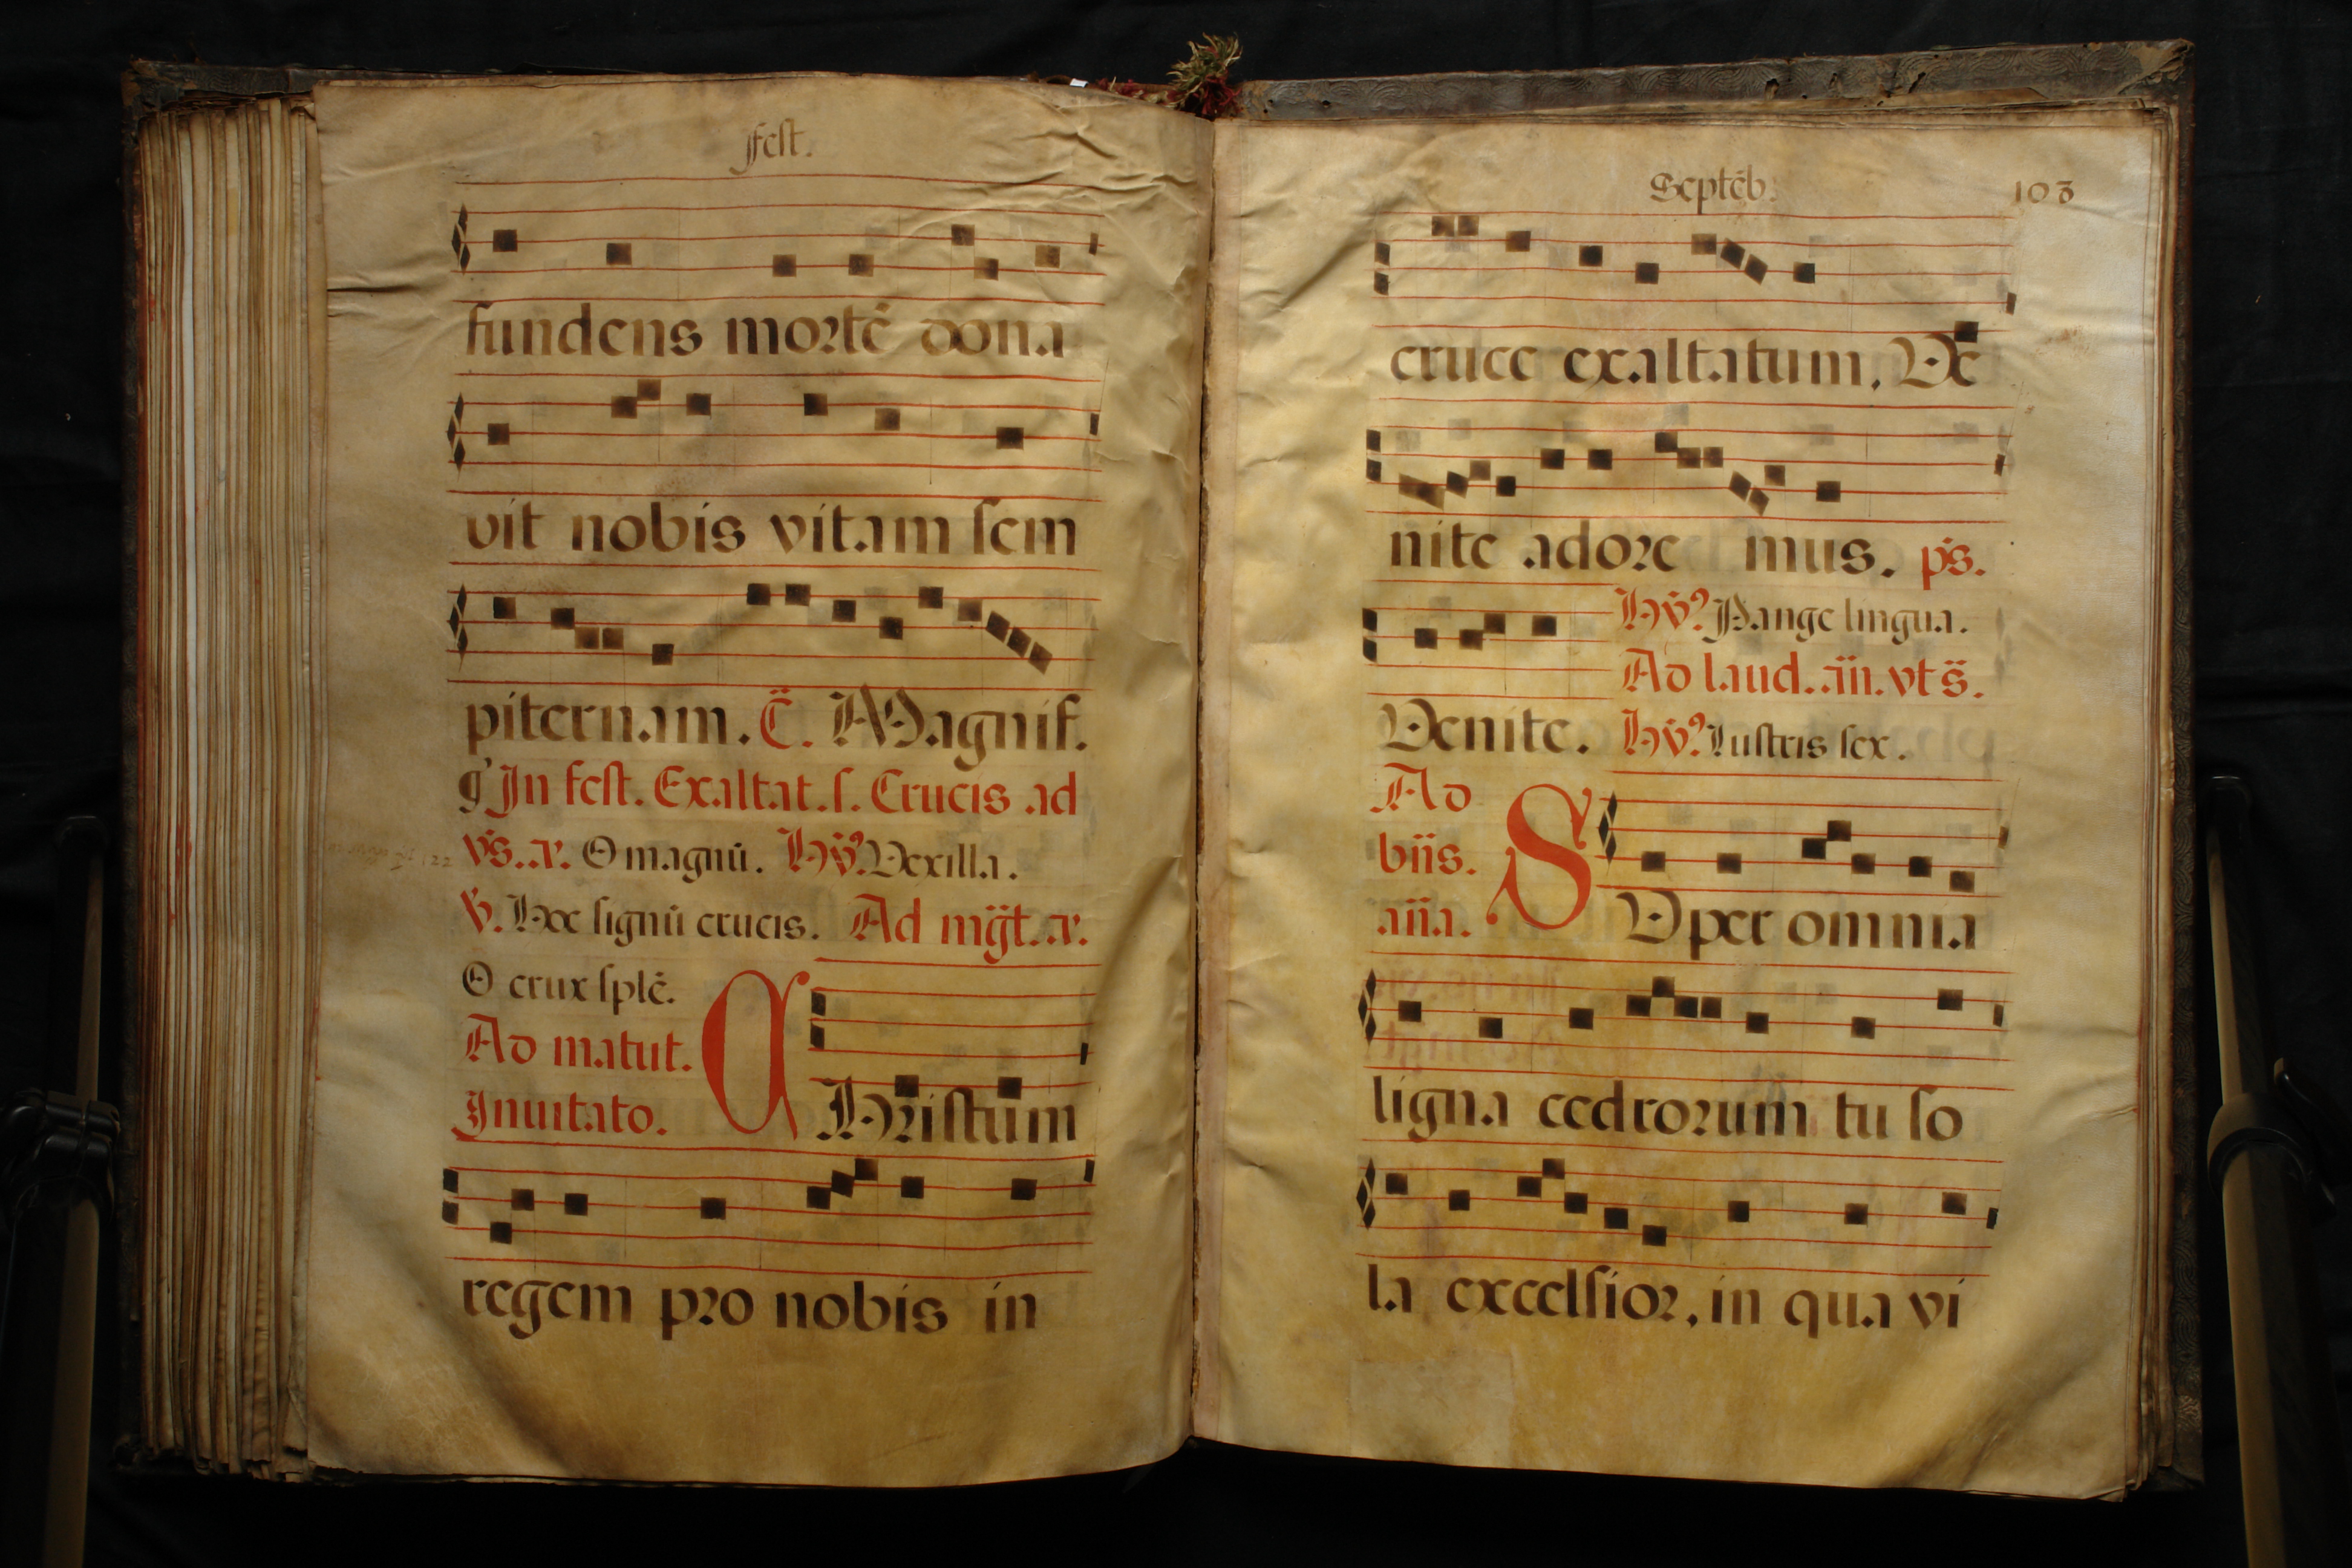 fest.
fundens mortē dona
vit nobis vitam sem
piternam. C̈. Magnif.
g' In fest. Exaltat. s. Crucis ad
vs̄. a. O magnū. Hy̆ꝰ. Vexilla.
V̆. Hoc signū crucis. Ad mg̈t. a.
O crux splē.
Ad matut.
Inuitato.
CHristum
regem pro nobis in
Septēb. 103
cruce exaltatum, Ve
nite adore mus. ps.
Hy̆ꝰ Pange lingua.
Ad laud. añ. vt s̄.
Venite. Hy̆ꝰ Lustris sex.
Ad
biis.
aña.
SVper omnia
ligna cedrorum tu so
la excelsior, in qua vi